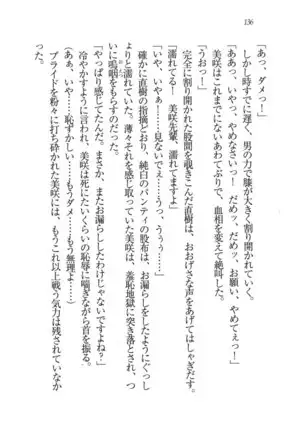 136
「あっ、ダメっ！」
しかし時すでに遅く、男の力で膝が大きく割り開かれていく。
「ああっ、いやっ、やめなさいっ！　だめッ、だめッ、お願い、やめてぇっ！」
美咲はこれまでにないあわてぶりで、血相を変えて絶叫した。
「うおっ！」
完全に割り開かれた股間を覗きこんだ直樹は、おおげさな声をあげてはしゃぎだす。
「濡れてる！　美咲先輩、濡れてますよ」
「いや、いやぁ……見ないでぇ……うっ、ううぅ……」
確かに直樹の指摘どおり、純白のパンティの股布は、お漏らしをしたようにぐっし
ょりと濡れていた。薄々それを感じ取っていた美咲は、羞恥地獄に突き落とされたよ
うに嗚咽をもらすのだった。
「やっぱり感じてたんだ。まさか、またお漏らししたわけじゃないですよね？」
冷やかすように言われ、美咲は死にたいくらいの恥辱に喘ぎながら首を振る。
「ああ、いや……恥ずかしい……もうダメ……もう無理よ……」
プライドを粉々に打ち砕かれた美咲には、もうこれ以上戦う気力は残されていなか
った。